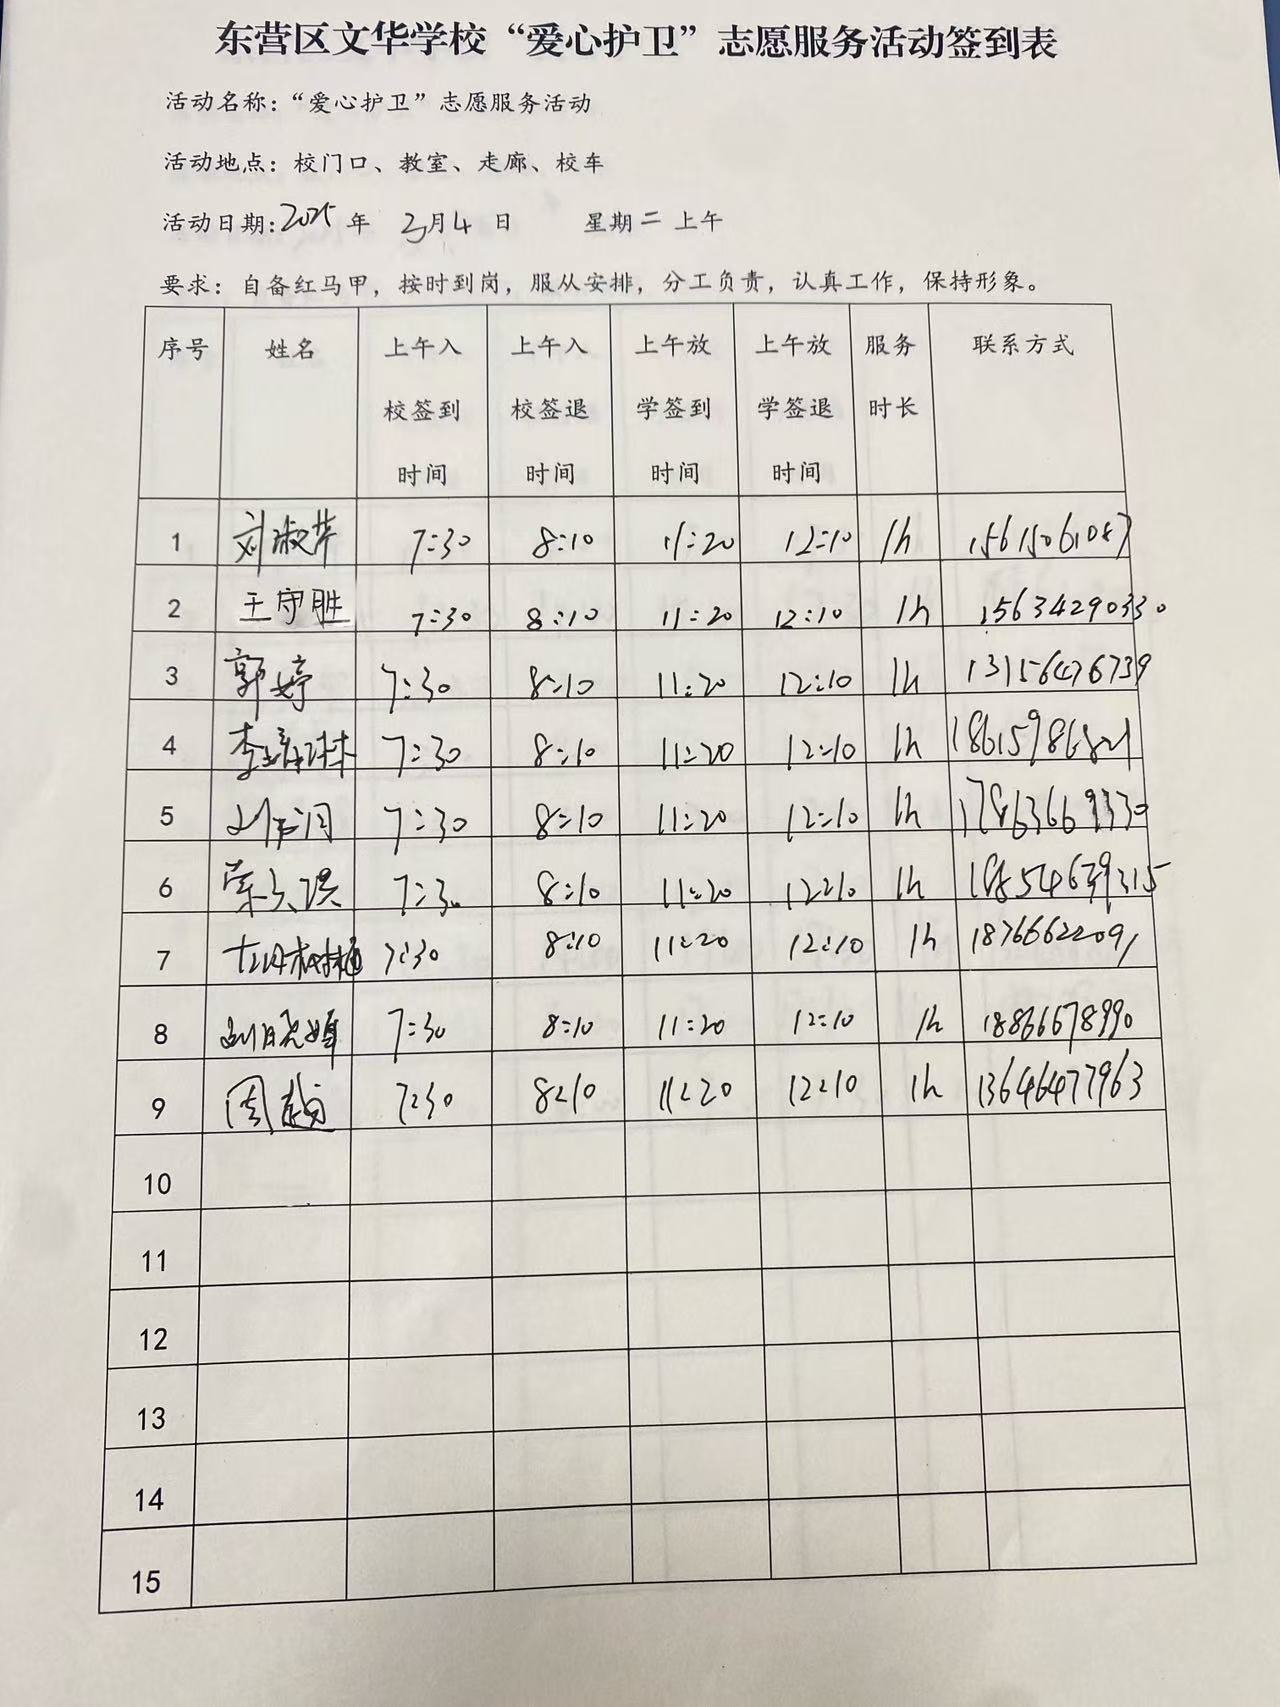 东营区文华学校“爱心护卫”志愿服务活动签到表
活动名称：“爱心护卫”志愿服务活动
活动地点：校门口、教室、走廊、校车
活动日期：2025年 3月4日 星期二 上午
要求：自备红马甲，按时到岗，服从安排，分工负责，认真工作，保持形象。
序号 姓名 上午入校签到时间 上午入校签退时间 上午放学签到时间 上午放学签退时间 服务时长 联系方式
1 刘淑芹 7:30 8:10 11:20 12:10 1h 15615061087
2 王守胜 7:30 8:10 11:20 12:10 1h 15634290330
3 郭婷 7:30 8:10 11:20 12:10 1h 13156476739
4 7:30 8:10 11:20 12:10 1h
5 7:30 8:10 11:20 12:10 1h
6 7:30 8:10 11:20 12:10 1h
7 7:30 8:10 11:20 12:10 1h 18766622091
8 7:30 8:10 11:20 12:10 1h 18866678990
9 7:30 8:10 11:20 12:10 1h 13646477963
10
11
12
13
14
15